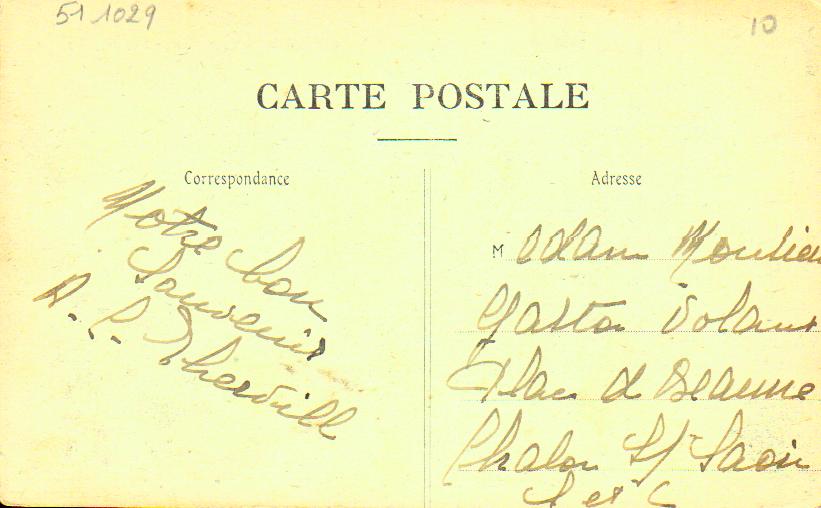 51 1029
10
CARTE POSTALE
Correspondance
Notre bon
Souvenir
A. L. Therville
Adresse
M adam Monsieu
Gaston Volant
Plac d Beaune
Chalon S/ Saon
S et L